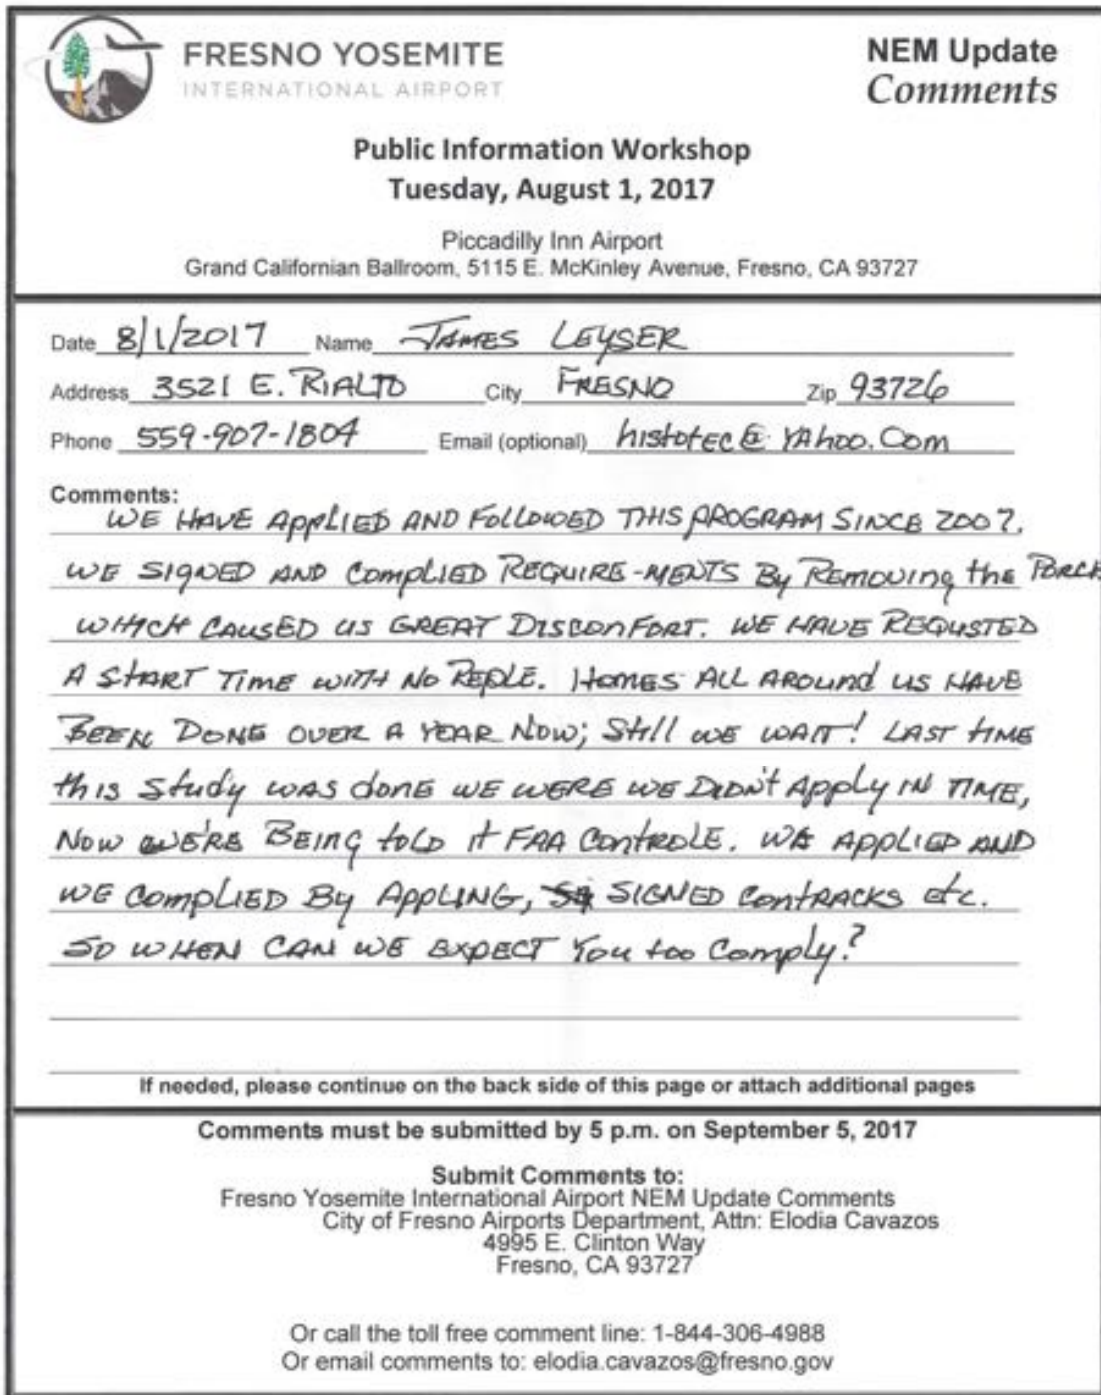 FRESNO YOSEMITE
INTERNATIONAL AIRPORT
NEM Update
Comments
Public Information Workshop
Tuesday, August 1, 2017
Piccadilly Inn Airport
Grand Californian Ballroom, 5115 E. McKinley Avenue, Fresno, CA 93727
Date 8/1/2017 Name JAMES LEYSER
Address 3521 E. RIALTO City FRESNO Zip 93726
Phone 559-907-1804 Email (optional) histotec@YAhoo.Com
Comments:
WE HAVE APPLIED AND FOLLOWED THIS PROGRAM SINCE 2007.
WE SIGNED AND COMPLIED REQUIRE-MENTS By REMOVING the PORCH
WHICH CAUSED US GREAT DISCONFORT. WE HAVE REQUSTED
A START TIME WITH NO REPLE. HOMES ALL AROUND US HAVE
BEEN DONE OVER A YEAR NOW; Still WE WAIT! LAST TIME
this Study WAS donE WE WERE WE DIDN't Apply IN TIME,
NOW WE'RE BEING told it FAA CONTROLE. WE APPLIED AND
WE COMPLIED By APPLING, SIGNED CONTRACKS etc.
SO WHEN CAN WE EXPECT You too Comply?
If needed, please continue on the back side of this page or attach additional pages
Comments must be submitted by 5 p.m. on September 5, 2017
Submit Comments to:
Fresno Yosemite International Airport NEM Update Comments
City of Fresno Airports Department, Attn: Elodia Cavazos
4995 E. Clinton Way
Fresno, CA 93727
Or call the toll free comment line: 1-844-306-4988
Or email comments to: elodia.cavazos@fresno.gov